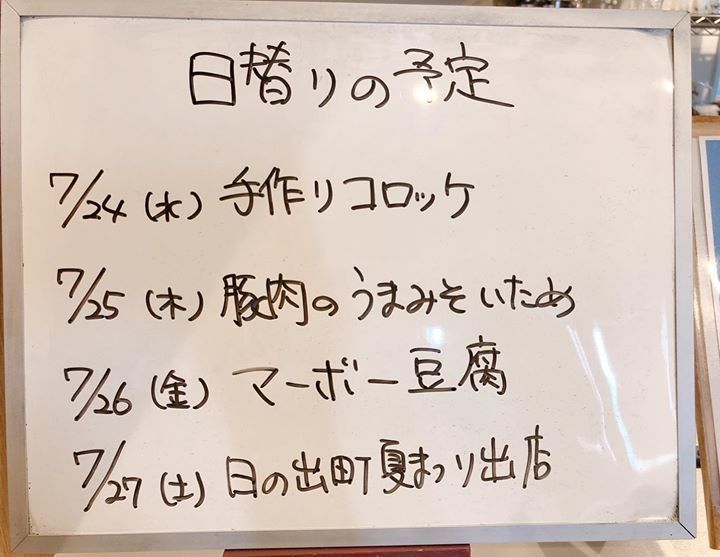 日替りの予定
7/24(水)手作りコロッケ
7/25(木)豚肉のうまみそいため
7/26(金)マーボー豆腐
7/27(土)日の出町夏まつり出店